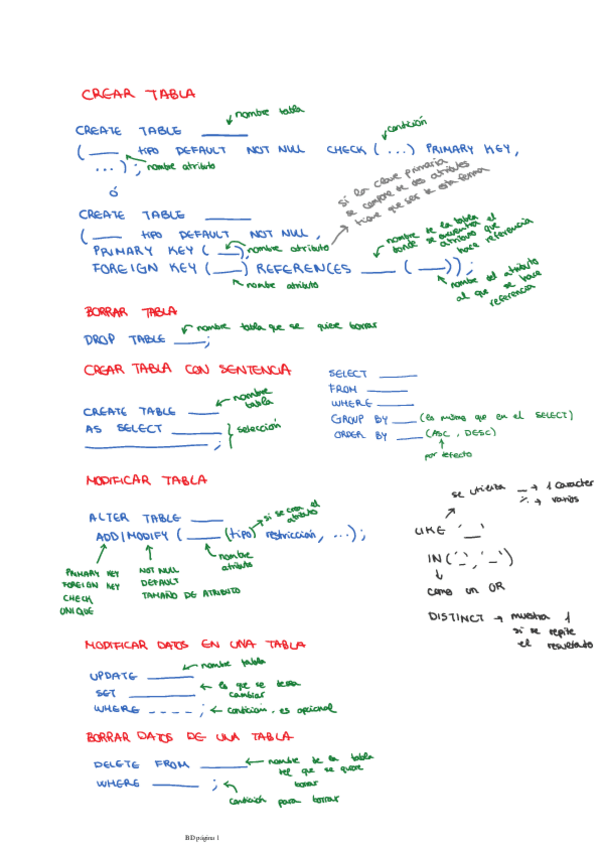 CREAR TABLA
nombre tabla
CREATE TABLE ______
condición
( ____ tipo DEFAULT NOT NULL CHECK ( ... ) PRIMARY KEY,
... ) ; nombre atributo
ó
si la clave primaria
se compone de dos atributos
tiene que ser de esta forma
CREATE TABLE ______
( ____ tipo DEFAULT NOT NULL,
PRIMARY KEY ( ____ ), nombre atributo
nombre de la tabla
donde se encuentra el
atributo que
hace referencia
FOREIGN KEY ( ____ ) REFERENCES ____ ( ____ ) ) ;
nombre atributo
nombre del atributo
al que se hace
referencia
BORRAR TABLA
nombre tabla que se quiere borrar
DROP TABLE ____ ;
CREAR TABLA CON SENTENCIA
nombre
tabla
CREATE TABLE ____
AS SELECT ______
____________ ;
selección
SELECT ____
FROM ____
WHERE ____
GROUP BY ___ (lo mismo que en el SELECT)
ORDER BY ___ (ASC, DESC)
por defecto
MODIFICAR TABLA
si se crea el
atributo
ALTER TABLE ____
ADD/MODIFY ( ____ (tipo) restricción, ... ) ;
nombre
atributo
PRIMARY KEY
FOREIGN KEY
CHECK
UNIQUE
NOT NULL
DEFAULT
TAMAÑO DE ATRIBUTO
se utiliza _ → 1 caracter
% → varios
LIKE '__'
IN ('_', '_')
como un OR
DISTINCT → muestra 1
si se repite
el resultado
MODIFICAR DATOS EN UNA TABLA
nombre tabla
UPDATE ______
SET ______ lo que se desea
cambiar
WHERE ---- ; condición, es opcional
BORRAR DATOS DE UNA TABLA
DELETE FROM ____ nombre de la tabla
del que se quiere
borrar
WHERE ____ ;
condición para borrar
BD página 1